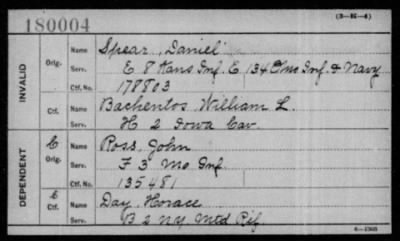 180004
(3-H-4)
INVALID
Orig.
Name Spear, Daniel
Serv. E 8 Kans Inf. E. 134 Ohio Inf. & Navy
Ctf. No. 178803
Ctf.
Name Bachentos, William L.
Serv. H 2 Iowa Cav.
DEPENDENT
C
Orig.
Name Ross, John
Serv. F 3 Mo Inf.
Ctf. No. 135481
C
Ctf.
Name Day, Horace
Serv. B 2 N.Y. Mtd Rif